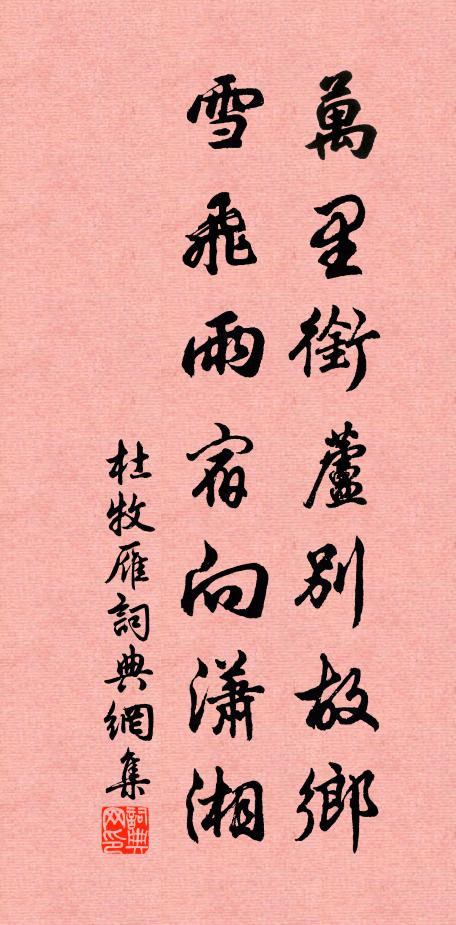 萬里銜蘆別故鄉
雪飛雨宿向瀟湘
杜牧雁詞典網集
詞典网印